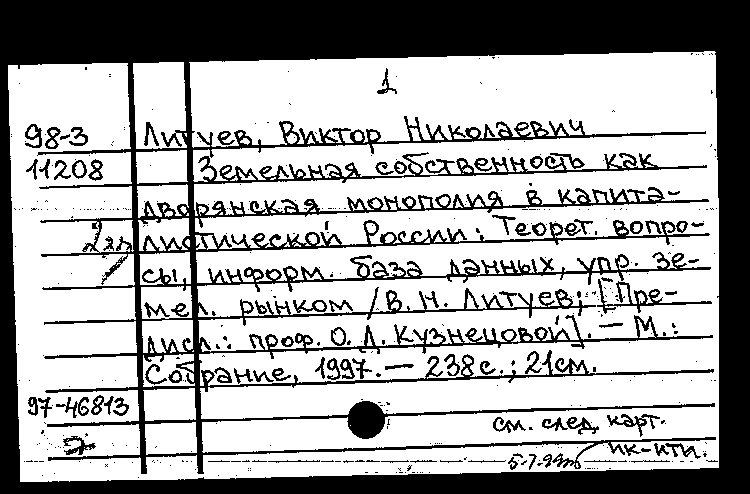 1
98-3 Литуев, Виктор Николаевич
11208 Земельная собственность как
дворянская монополия в капита-
листической России: Теорет. вопро-
сы, информ. база данных, упр. зе-
мел. рынком / В. Н. Литуев; [Пре-
дисл.: проф. О. Д. Кузнецовой]. — М.:
Собрание, 1997. — 238 с.; 21 см.
97-46813
см. след. карт.
2
5-7.99 ик-нти.